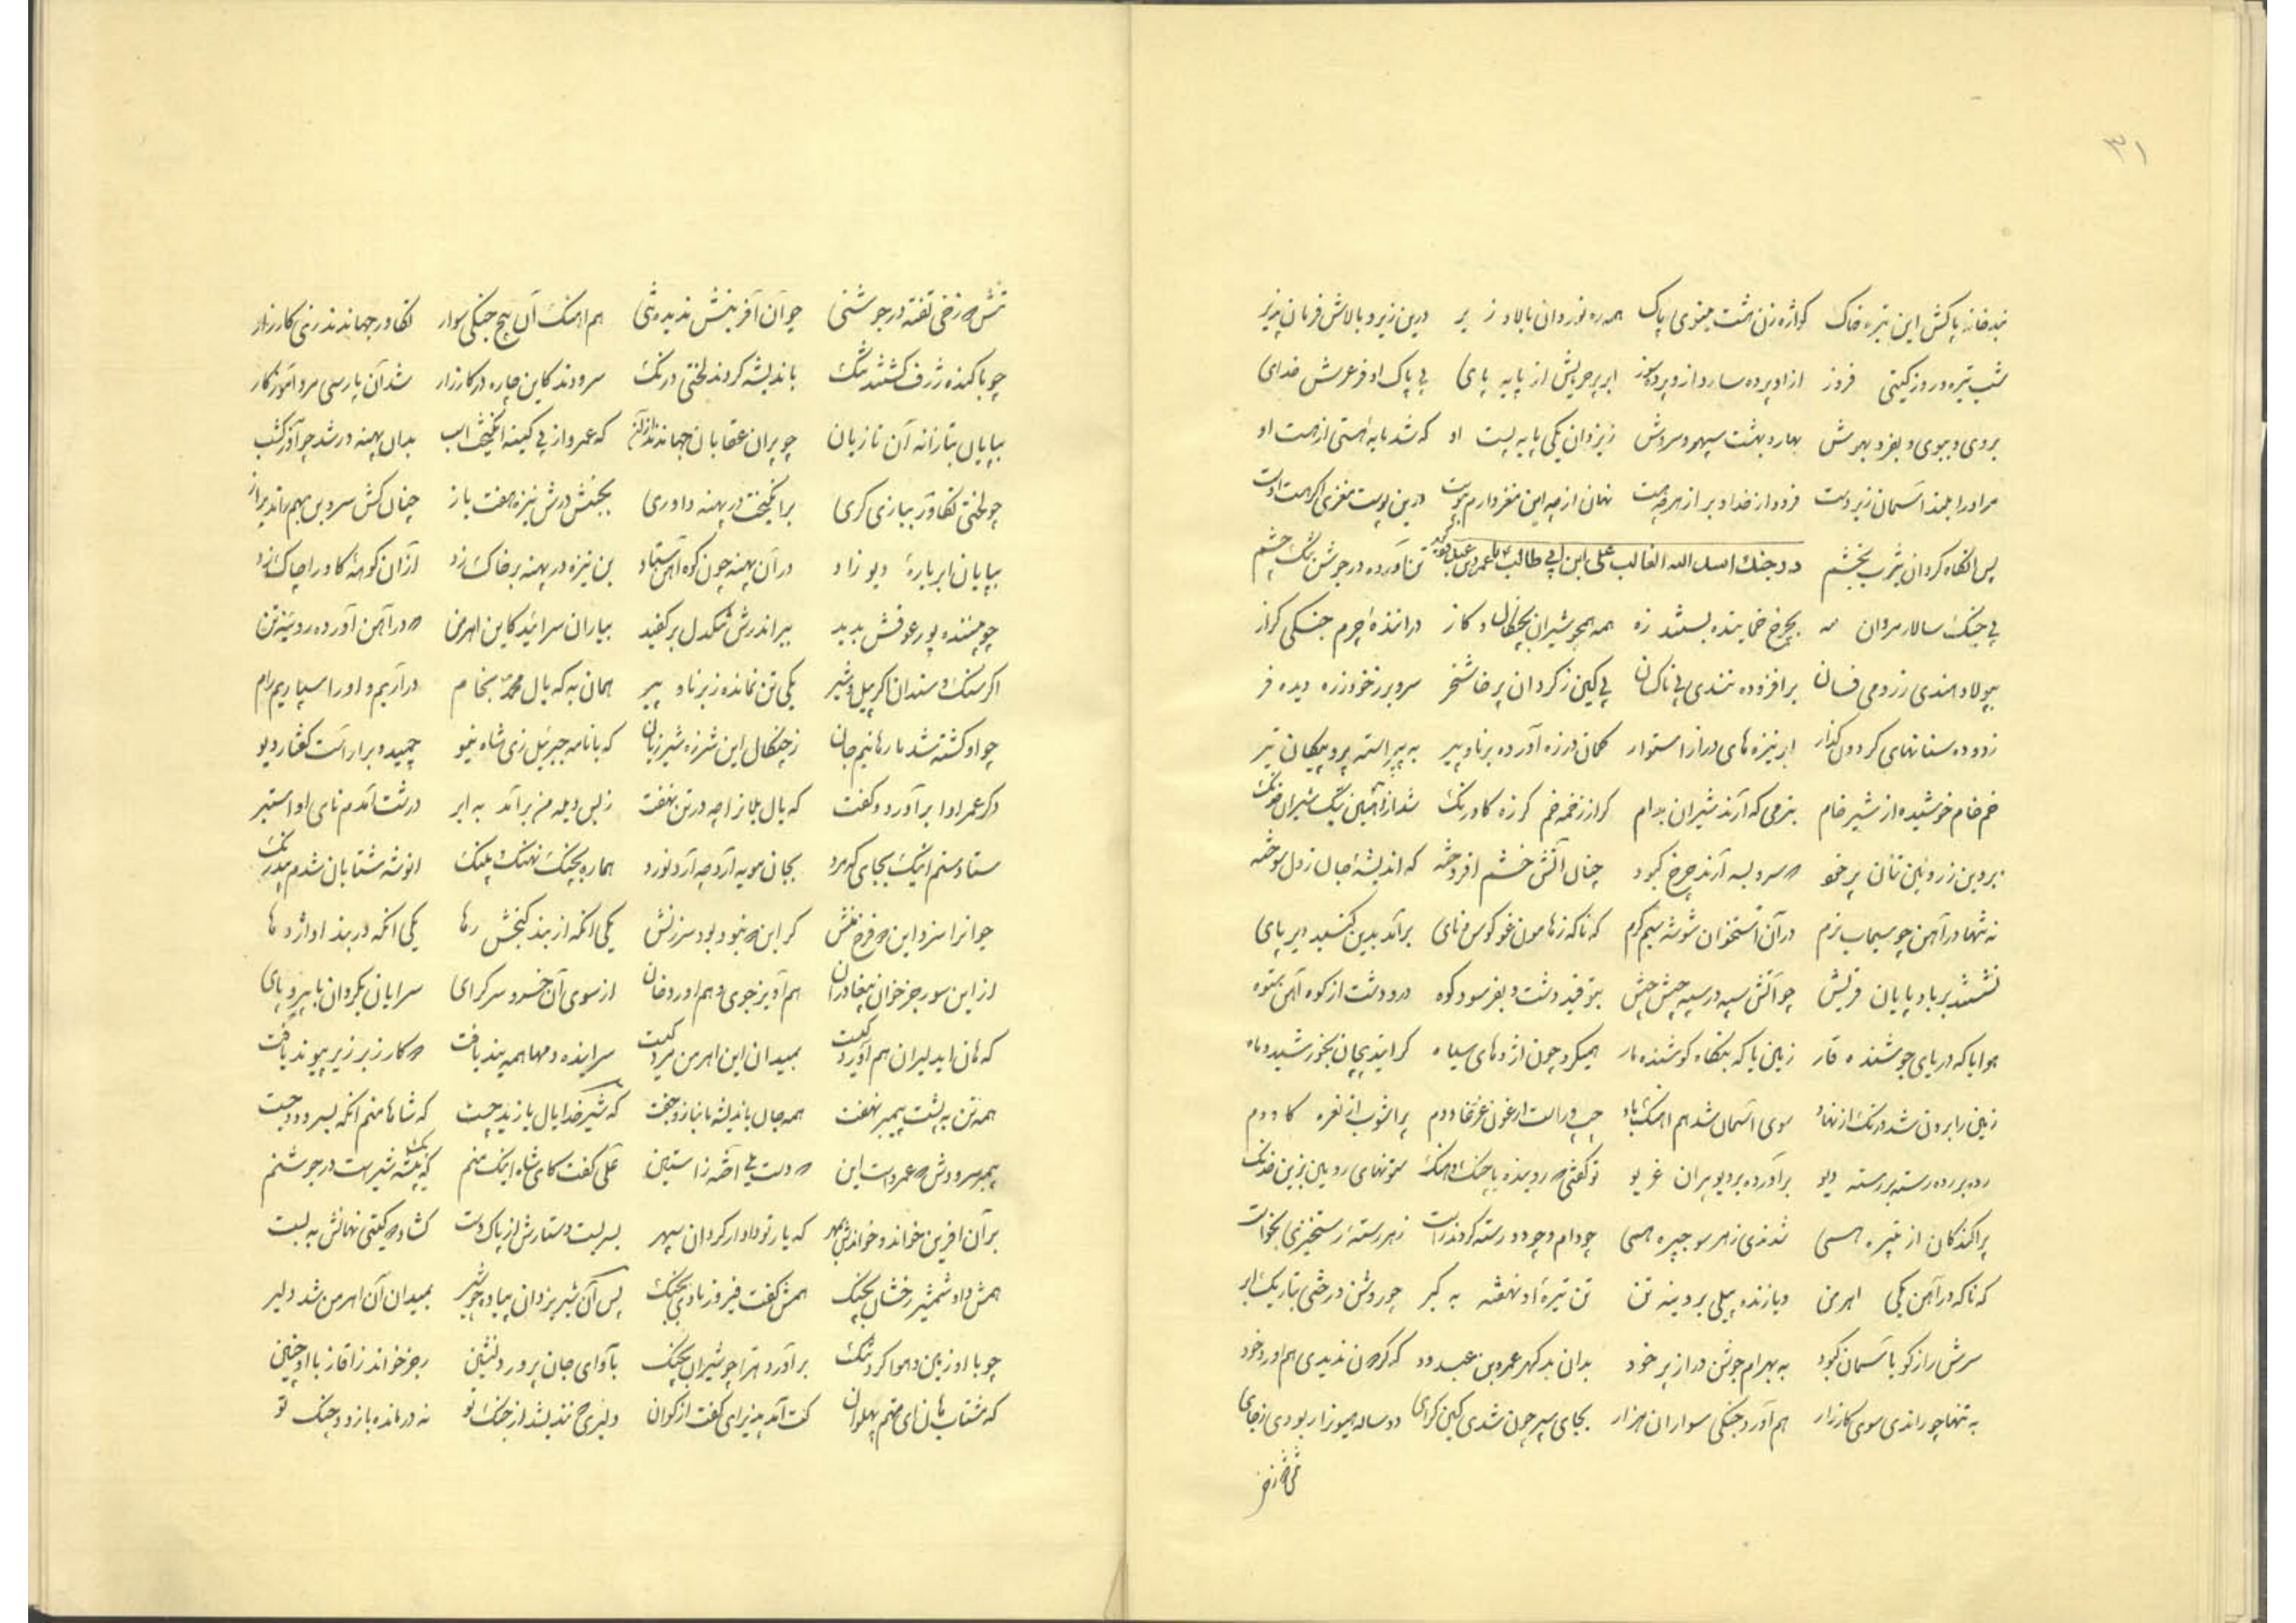 ۳۱
بدخانه پاکش این تیره خاک کواژه زن هشت مینوی پاک همه ره نوردان بالا و زیر درین زیر و بالاش فرمان پذیر
شب تیره و روز کیتی فروز از او پرده ساز و از او پرده سوز ابر پر جبریلش از پایه پای پی پاک او فر عرش خدای
بروی و ببوی و بفر و بهوش بهار و بهشت سپهر و سروش ز یزدان یکی پایه پست او که شد مایه هستی از هست او
مر او را بلند آسمان زیر دست فرود از خدا و بر از هر چه هست نهان از چه این مغز دارم بپوست درین پوست مغزی اکر هست اوست
پس انکاه کردان یثرب بخشم در جنک اسد الله الغالب علی ابن ابی طالب با عمرو بن عبدود کوید تن آورده در جوشن تنک چشم
پی جنک سالار مردان مه بچرخ خماینده بستند زه همه همچو شیران بچنکال و کاز دراننده چرم جنکی کراز
بپولاد هندی ز رومی فسان برافزوده تندی پی ناکسان پی کین ز کردان پرخاشخر سر و بر ز خود و زره دیده فر
زدوده سنانهای کردون کذار ابر نیزه های دراز استوار کمان در زه آورده برنا و پیر به پیراسته پر و پیکان تیر
خم خام خوشیده از شیر خام بنرمی که آرند شیران بدام کران زخمه خم کرزه کاورنک شد از آهنین شیران
برون ز رویین تنان پر خمو چه سر و بسه آرند چرخ کبود چنان آتش خشم افروخته که اندیشه جان ز دل سوخته
نه تنها در آهن چو سیماب نرم در آن استخوان شوشه سیم کرم که ناکه ز هامون غو کوس و نای برآمد بدین کنبد دیر پای
نشستند بر باد پایان قریش چو آتش سپه در سپه جیش جیش بتوفید دشت و بفرسود کوه در و دشت از کوه آهن ستوه
هوا یا که دریای جوشنده قار زمین یا که بنکاه کوشنده مار همیکرد چون اژدهای سیاه کرایند پیچان بخورشید و ماه
زمین را برون شد درنک از نهاد سوی آسمان شد هم آهنک باد چپ و راست ارغنون غوغا و دوم پر آشوب از نعره کاو دم
رده بر رده رسته بر رسته دیو برآورده بر دیو پران غریو تو کفتی که روینده با جنک و آهنک ستونهای رویین بزین خدنک
پراکندکان از تیره همی شدندی ز هر سو چیره همی چو دام و چو دد رسته کردند راست ز هر رسته رستخیزی بخواست
که ناکه در آهن یکی اهرمن دیازنده پیلی بروینه تن تن تیره او نهفته به کبر چو روشن درخشی بتاریک ابر
سرش راز کو با آسمان کبود به بهرام جوشن دراز پر خود بدان بد کهر عمرو بن عبدود که کردون ندیدی هم آورد خود
به تنها چو راندی سوی کارزار هم آورد جنکی سواران هزار بجای سپر چون شدی کین کرای دو ساله هیون زار بودی ز جای
تنش دوزخی تفته در جوشنی چو آن آفرینش ندیده تنی هم آهنک آن پنج جنکی سوار تکاور جهاندند زی کارزار
چو با کنده ژرف کشتند تنک باندیشه کردند لختی درنک سرودند کاین چاره در کارزار شد آن پارسی مرد آموزکار
بپایان بتازانه آن تازیان چو پران عقابان جهاندند از آن که عمرو از پی کینه انکیخت اسب بدان پهنه در شد چو آذر کشسب
چو لختی تکاور ببازی کری برانکیخت در پهنه داوری بجنبش درش نیزه هفت باز چنان کش سر و بن بهم راند باز
بپایان ابر باره دیو زاد در آن پهنه چون کوه آهن ستاد بن نیزه در پهنه بر خاک زد از آن کوهه کاو را چاک زد
چو بیننده پور عوفش بدید ببر اندرش تنکدل بر کفید بیاران سرایید کاین اهرمن که در آهن آورده رویینه تن
اکر سنک و سندان اکر پیل و شیر یکی تن نمانده ز برنا و پیر همان به که یال محمد بخام درآریم و او را سپاریم رام
چو او کشته شد ما رهانیم جان ز چنکال این شرزه شیر ژیان که با نامه جبریل زی شاه نیو چمید و بر آراست کفتار دیو
دکر عمر آوا برآورد و کفت که یال یلان را چه در تن نهفت ز بس ویله من برآمد به ابر درشت آمدم نای او استبر
ستاد ستم اینک بجای که مرد بجان مویه آرد چه آرد نورد هماره بجنک نهنک و پلنک انوشه شتابان شدم بیدرنک
جوانرا سزد این چه فرخ منش کر این نبود بود سرزنش یکی آنکه از بند کنجش رها یکی آنکه در بند او اژدها
از این سو رجز خوان تیغا دران هم آویز جوی و هم آورد خان از سوی آن خسرو سر کرای سرایان بکردان با پر و پای
که هان ای دلیران هم آورد کیست بمیدان این اهرمن مرد کیست سراینده دمها همه بند یافت چه کار زبر زیر پیوند یافت
همه تن به پشت پیمبر نهفت همه جان باندیشه انباز و جفت که شیر خدا یال یازید چست که شاها منم آنکه بسرود و جست
پیمبر سرودش که عمرو است این که دست یلی آخته ز آستین علی کفت کای شاه اینک منم که یک بیشه شیر است در جوشنم
بر آن آفرین خواند و خواندش بمهر که یار تو دادار کردان سپهر بسر بست دستارش از پاک دست کشاد که کیتی نهانش به بست
همش داد شمشیر رخشان بچنک همش کفت فیروز بادی بجنک پس آن شیر یزدان پیاده چو شیر بمیدان آن اهرمن شد دلیر
چو با او زمین و هوا کرد تنک برآورد هرا چو شیران بجنک بآوای جان پرور دلنشین رجز خواند ز آغاز با او چنین
که مشتاب هان ای متهم پهلوان کت آمد پذیرای کفت از کوان دلیری که نندیشد از جنک تو نه درمانده بازو و چنک تو